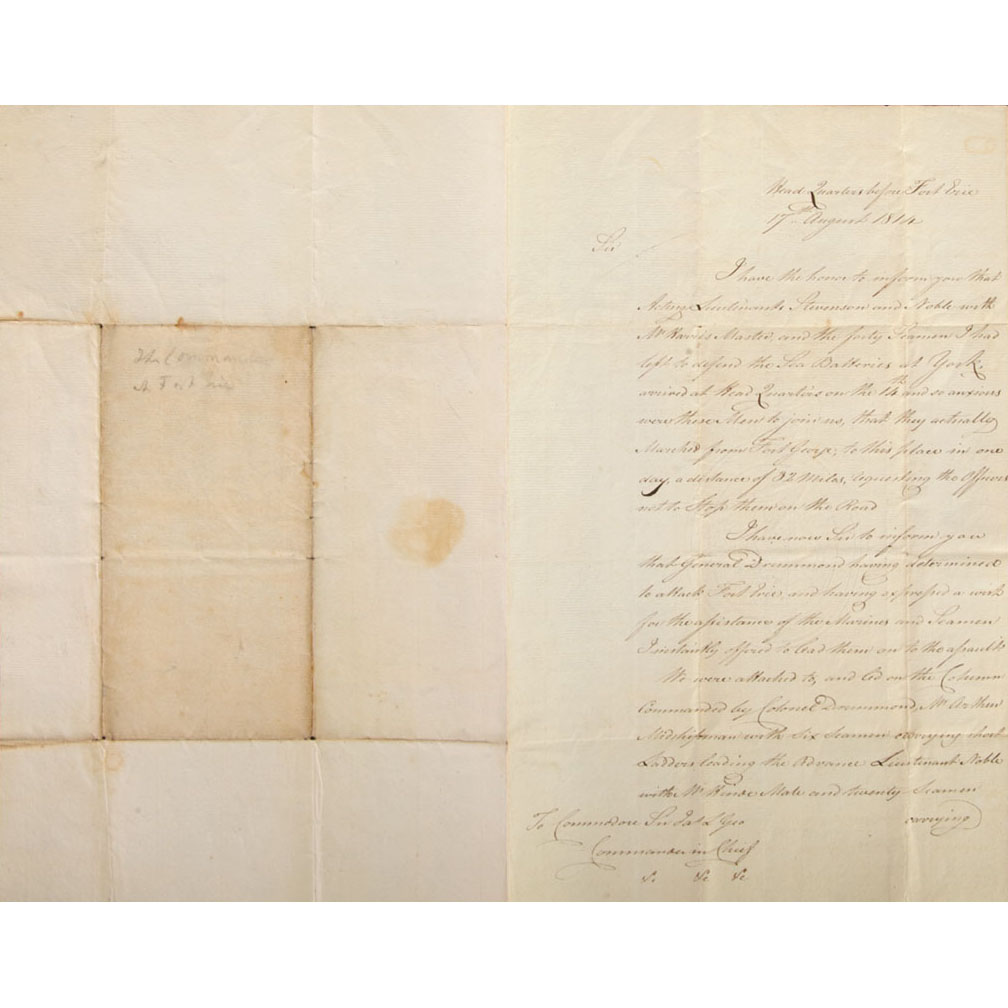 The Commander
At Fort Erie
Head Quarters before Fort Erie
17th August 1814
Sir
I have the honor to inform you that
Acting Lieutenants Stevenson and Noble with
Mr Harris Master, and the forty Seamen I had
left to defend the Sea Batteries at York,
arrived at Head Quarters on the 14th and so anxious
were these Men to join us, that they actually
Marched from Fort George, to this place in one
day, a distance of 32 Miles, requesting the Officers
not to Stop them on the Road
I have now Sir to inform you
that General Drummond having determined
to attack Fort Erie, and having expressed a wish
for the assistance of the Marines and Seamen
I instantly offered to lead them on to the assault
We were attached to, and led on the Column
Commanded by Colonel Drummond, Mr
Midshipman with Six Seamen carrying short
Ladders leading the Advance Lieutenant Noble
with Mr Hinde Mate and twenty Seamen
carrying
To Commodore Sir Jas L Yeo
Commander in Chief
&c &c &c